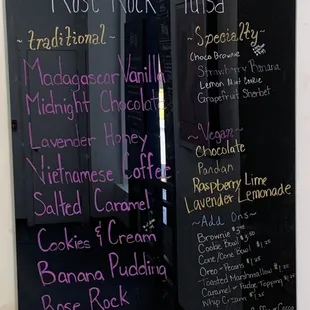 Rose Rock Tulsa
~traditional~
Madagascar Vanilla
Midnight Chocolate
Lavender Honey
Vietnamese Coffee
Salted Caramel
Cookies & Cream
Banana Pudding
Rose Rock
~Specialty~
Choco Brownie
Strawberry Banana
Lemon Cookie
Grapefruit Sherbet
~Vegan~
Chocolate
Pandan
Raspberry Lime
Lavender Lemonade
~Add Ons~
Brownie
Cookie Bowl
Cone/Cone Bowl
Oreo - Pecans $1.25
Toasted Marshmallow $1.25
Caramel - Fudge Topping
Whip Cream